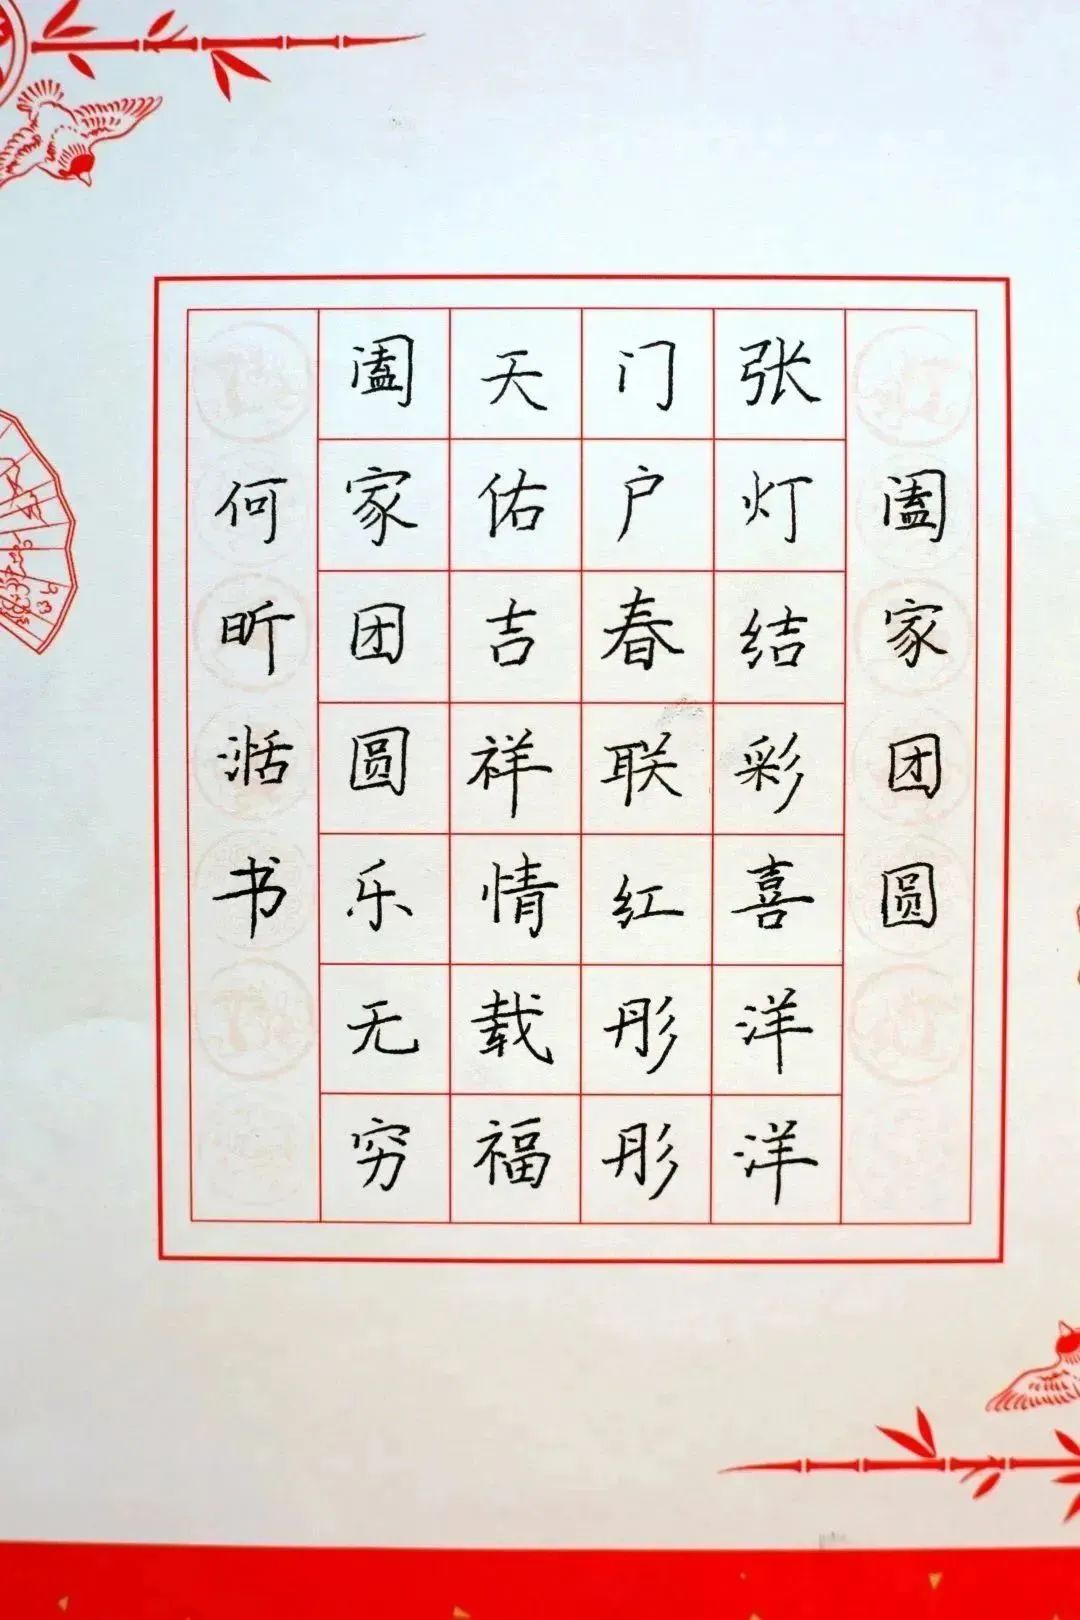 阖家团圆
张灯结彩喜洋洋
门户春联红彤彤
天佑吉祥情载福
阖家团圆乐无穷
何昕湉书